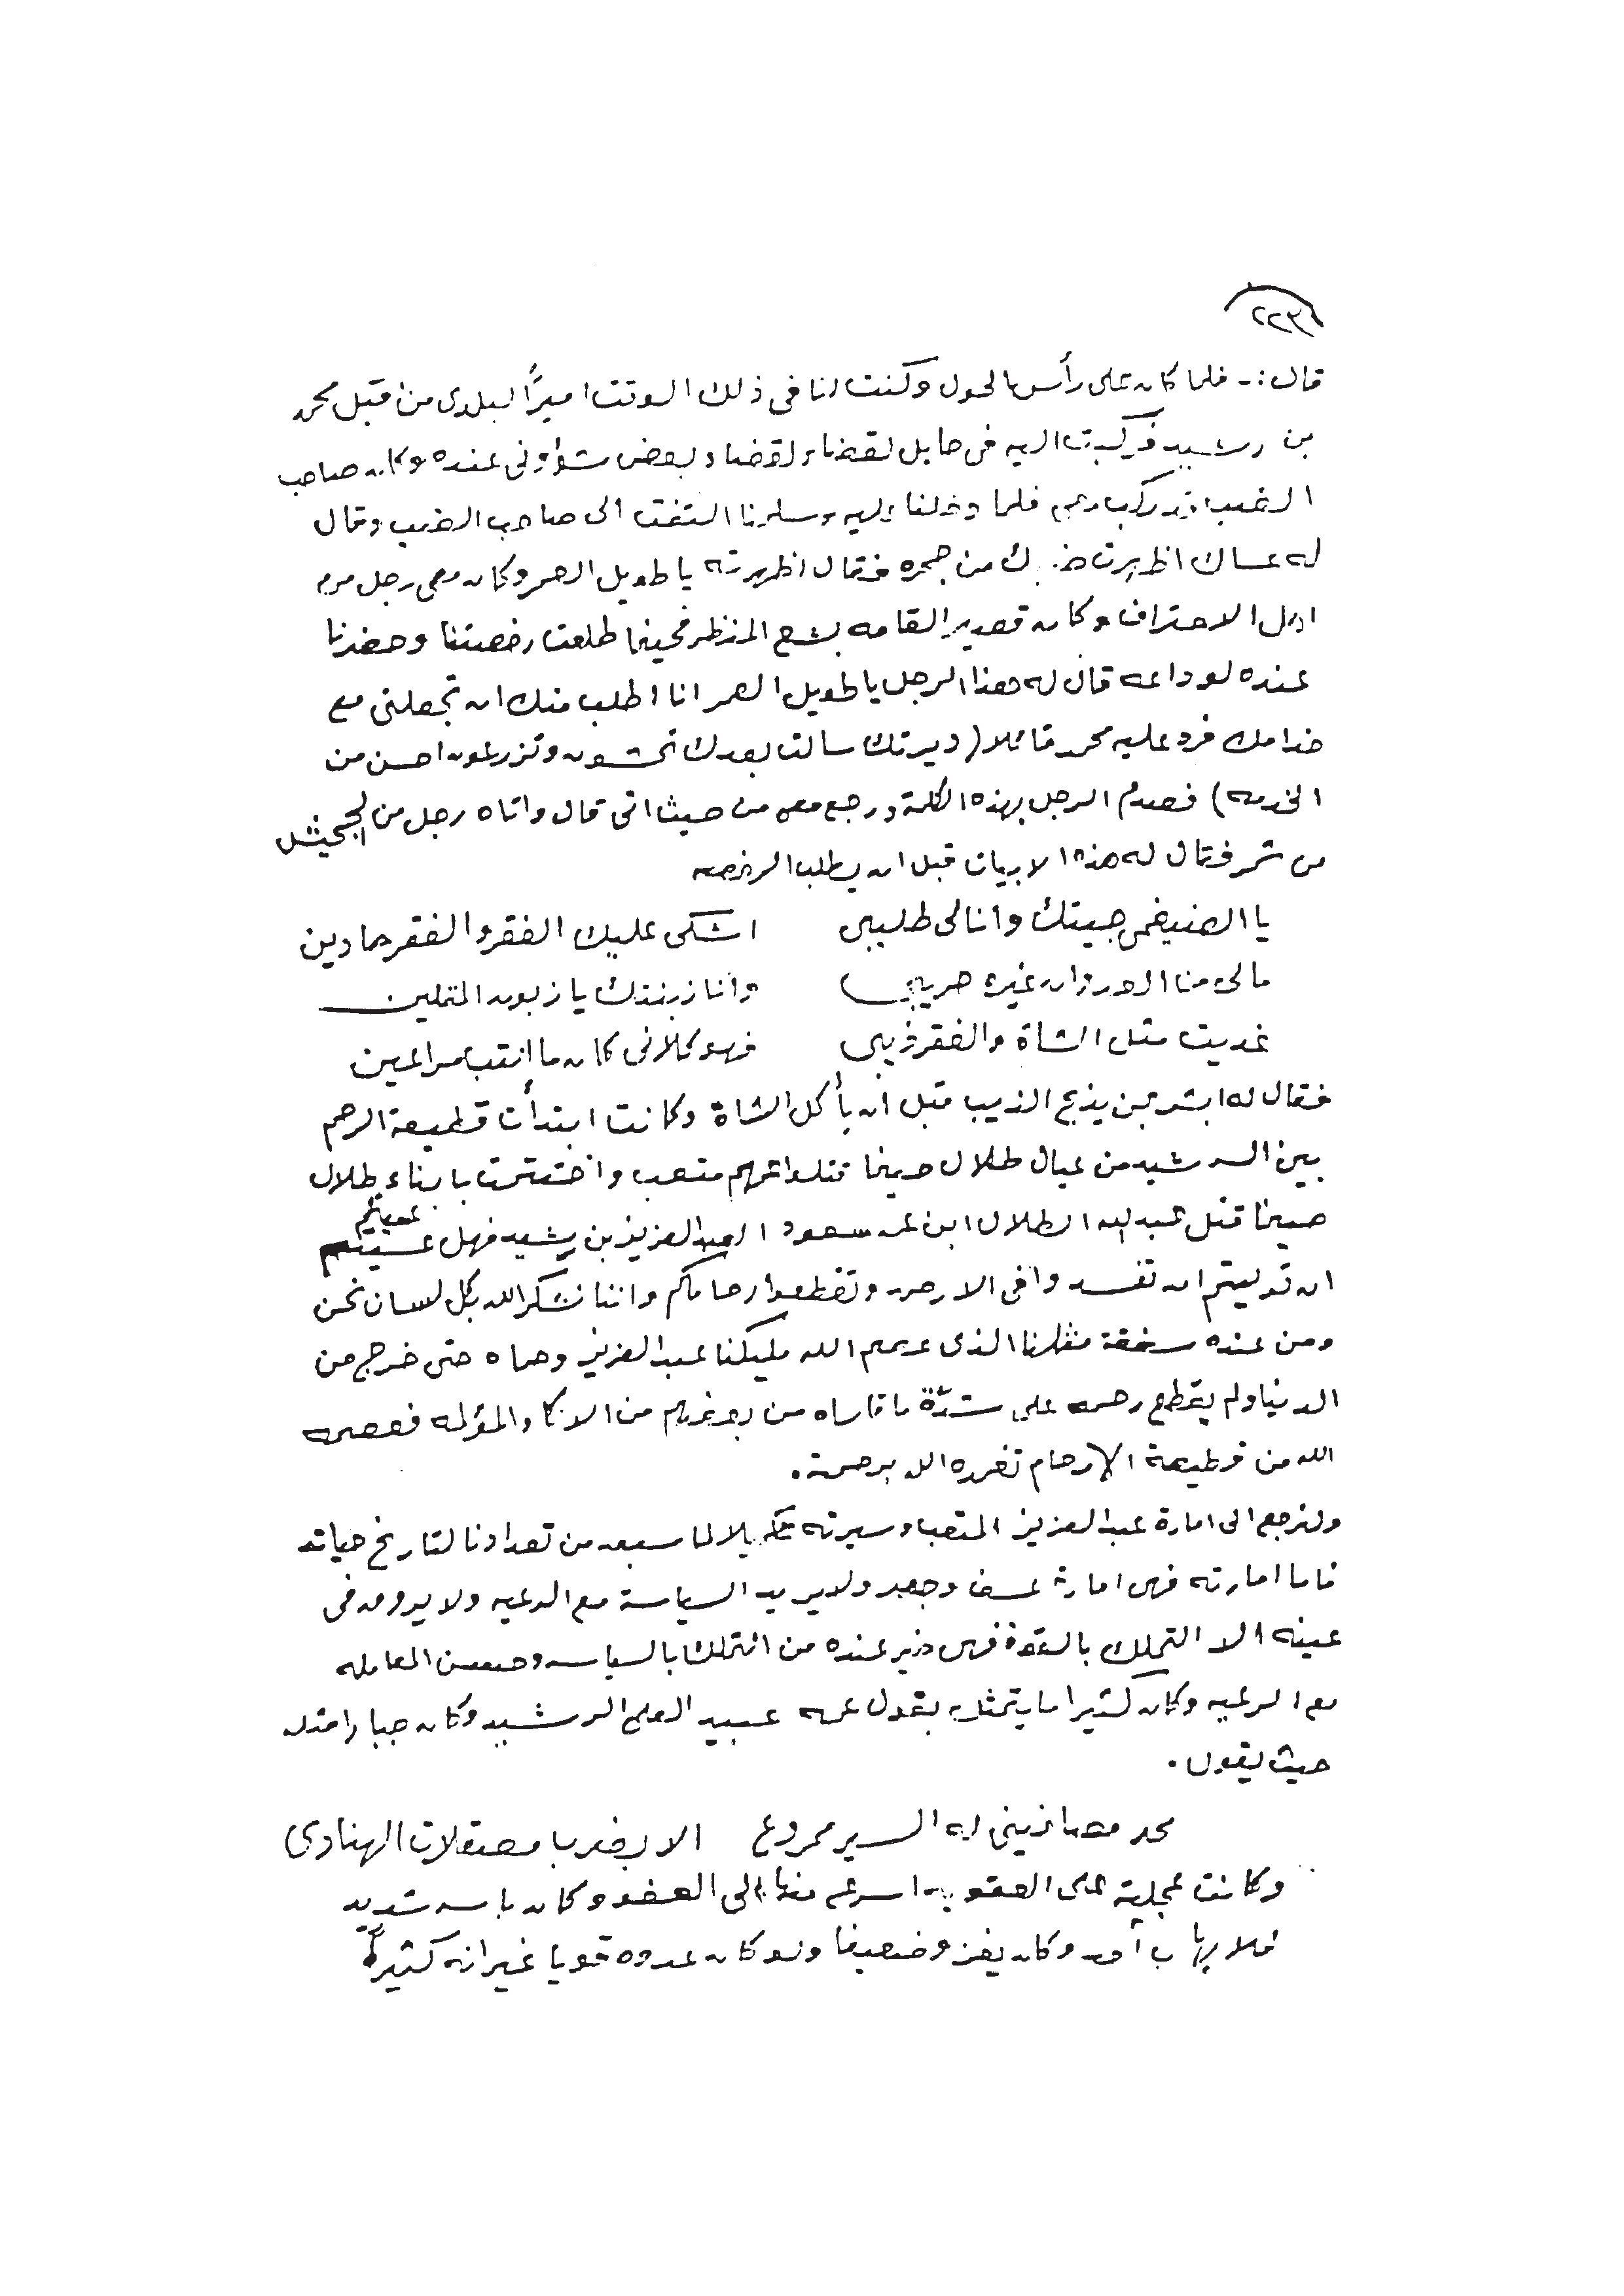 ٢٢٣
قال :- فلما كان على رأس الحول وكنت انا في ذلك الوقت اميرًا لبلدي من قبل محمد
بن رشيد فركبت اليه في حايل لقضاء لقضاء بعض شؤوني عنده وكان صاحب
الضب قد ركب معي فلما دخلنا عليه وسلمنا التفت الى صاحب الضب وقال
له عساك اظهرت ضبك من جحره فقال اظهرته يا طويل العمر وكان معي رجل من
اهل الاحتراف وكان قصير القامه بشع المنظر فحينما طلعت رخصتنا وحضرنا
عنده لوداعه قال له هذا الرجل يا طويل العمر انا اطلب منك ان تجعلني مع
خدامك فرد عليه محمد قائلا ( ديرتك سالت بعدك تحشون وتزرعون احسن من
الخدمه ) فصدم الرجل بهذه الكلمة ورجع معي من حيث اتى قال واتاه رجل من الجحيش
من شمر فقال له هذه الابيات قبل ان يطلب الرخصه
يا الضيغمي جيتك وانا لي طليبي اشكي عليك الفقر والفقر حادين
مالي من الوردان غيره حريبي وانا زبنتك يا زبون المقلين
غديت مثل الشاة والفقر ذيبي فهو كلاني كان ما انتب مراعين
فقال له ابشر بمن يذبح الذيب قبل ان يأكل الشاة وكانت ابتدأت قطيعة الرحم
بين الرشيد من عيال طلال حينما قتلوا عمهم متعب واختتمت بابناء طلال
حينما قتل عبدالله الطلال ابن عمه سعود العبدالعزيز بن رشيد فهل عسيتم عسيتم
ان توليتم ان تفسدوا في الارض وتقطعوا ارحامكم واننا نشكر الله بكل لسان نحن
ومن عنده شفقة مثلنا الذي عصم الله مليكنا عبدالعزيز وحماه حتى خرج من
الدنيا ولم يقطع رحمه على شدّة ما قاساه من بعضهم من الانكاد المؤلمه فعصمه
الله من قطيعة الارحام تغمده الله برحمته .
ولنرجع الى امارة عبدالعزيز المتعب وسيرته تكميلا لما سبق من تعدادنا لتاريخ حياته
فاما امارته فهي امارة عسف وجهد ولا يريد السياسة مع الرعيه ولا يروق في
عينه الا التملك بالقوة فهي خير عنده من التملك بالسياسه وحسن المعامله
مع الرعيه وكان كثيرا ما يتمثل بقول عمه عبيد العلي الرشيد وكان جبارا مثله
حيث يقول .
محد مصافيني له السير مجروع الا بضرب مصقلات الهنادي
وكانت عجلته على العقوبه اسرع منها الى العفو وكان باسه شديد
فلا يهاب أحد وكان يغزو ضعيفا ولو كان عدوه قويا غير انه كثيرا